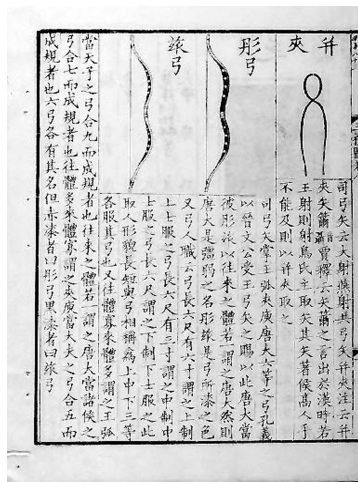 并夾
司弓矢云大射燕射共弓矢并夾注云并
夾矢籋賈釋云矢籋之言出於漢時若
王射則射鳥氏主取矢其矢著侯高人手
不能及則以并夾取之
彤弓
司弓矢掌王弧夾庾唐大六等之弓孔義
以晉文公受王弓矢之賜以此唐大當
彼彤玈以往來之體若一謂之唐大然則
唐大是彊弱之名彤玈是弓所漆之色
又弓人職云弓長六尺有六寸謂之上制
玈弓
上士服之弓長六尺有三寸謂之中制中
士服之弓長六尺謂之下制下士服之此
取人形貌長短與弓相稱為上中下三等
各服其弓也又往體寡來體多謂之王弧
當天子之弓合九而成規者也往來之體若一謂之唐大當諸侯之
弓合七而成規者也往體多來體寡謂之夾庾當大夫之弓合五而
成規者也六弓各有其名但赤漆者曰彤弓黑漆者曰玈弓